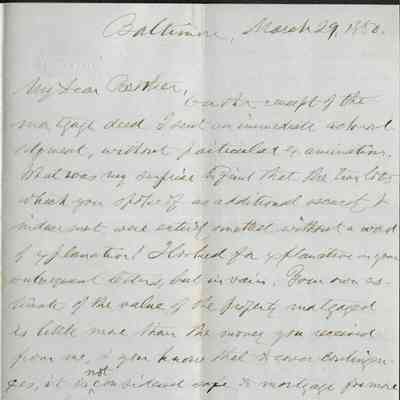 Baltimore, March 29, 1880.
My Dear Brother,
On the receipt of the
mortgage deed I sent an immediate acknowl-
edgment, without particular examination.
What was my surprise to find that the two lots
which you spoke of as additional security &
indeed were entirely omitted without a word
of explanation! I looked for explanation in your
subsequent letters, but in vain. Your own es-
timate of the value of the property mortgaged
is little more than the money you received
from me, & you know that to cover contingen-
cies, it is not considered safe to mortgage for more